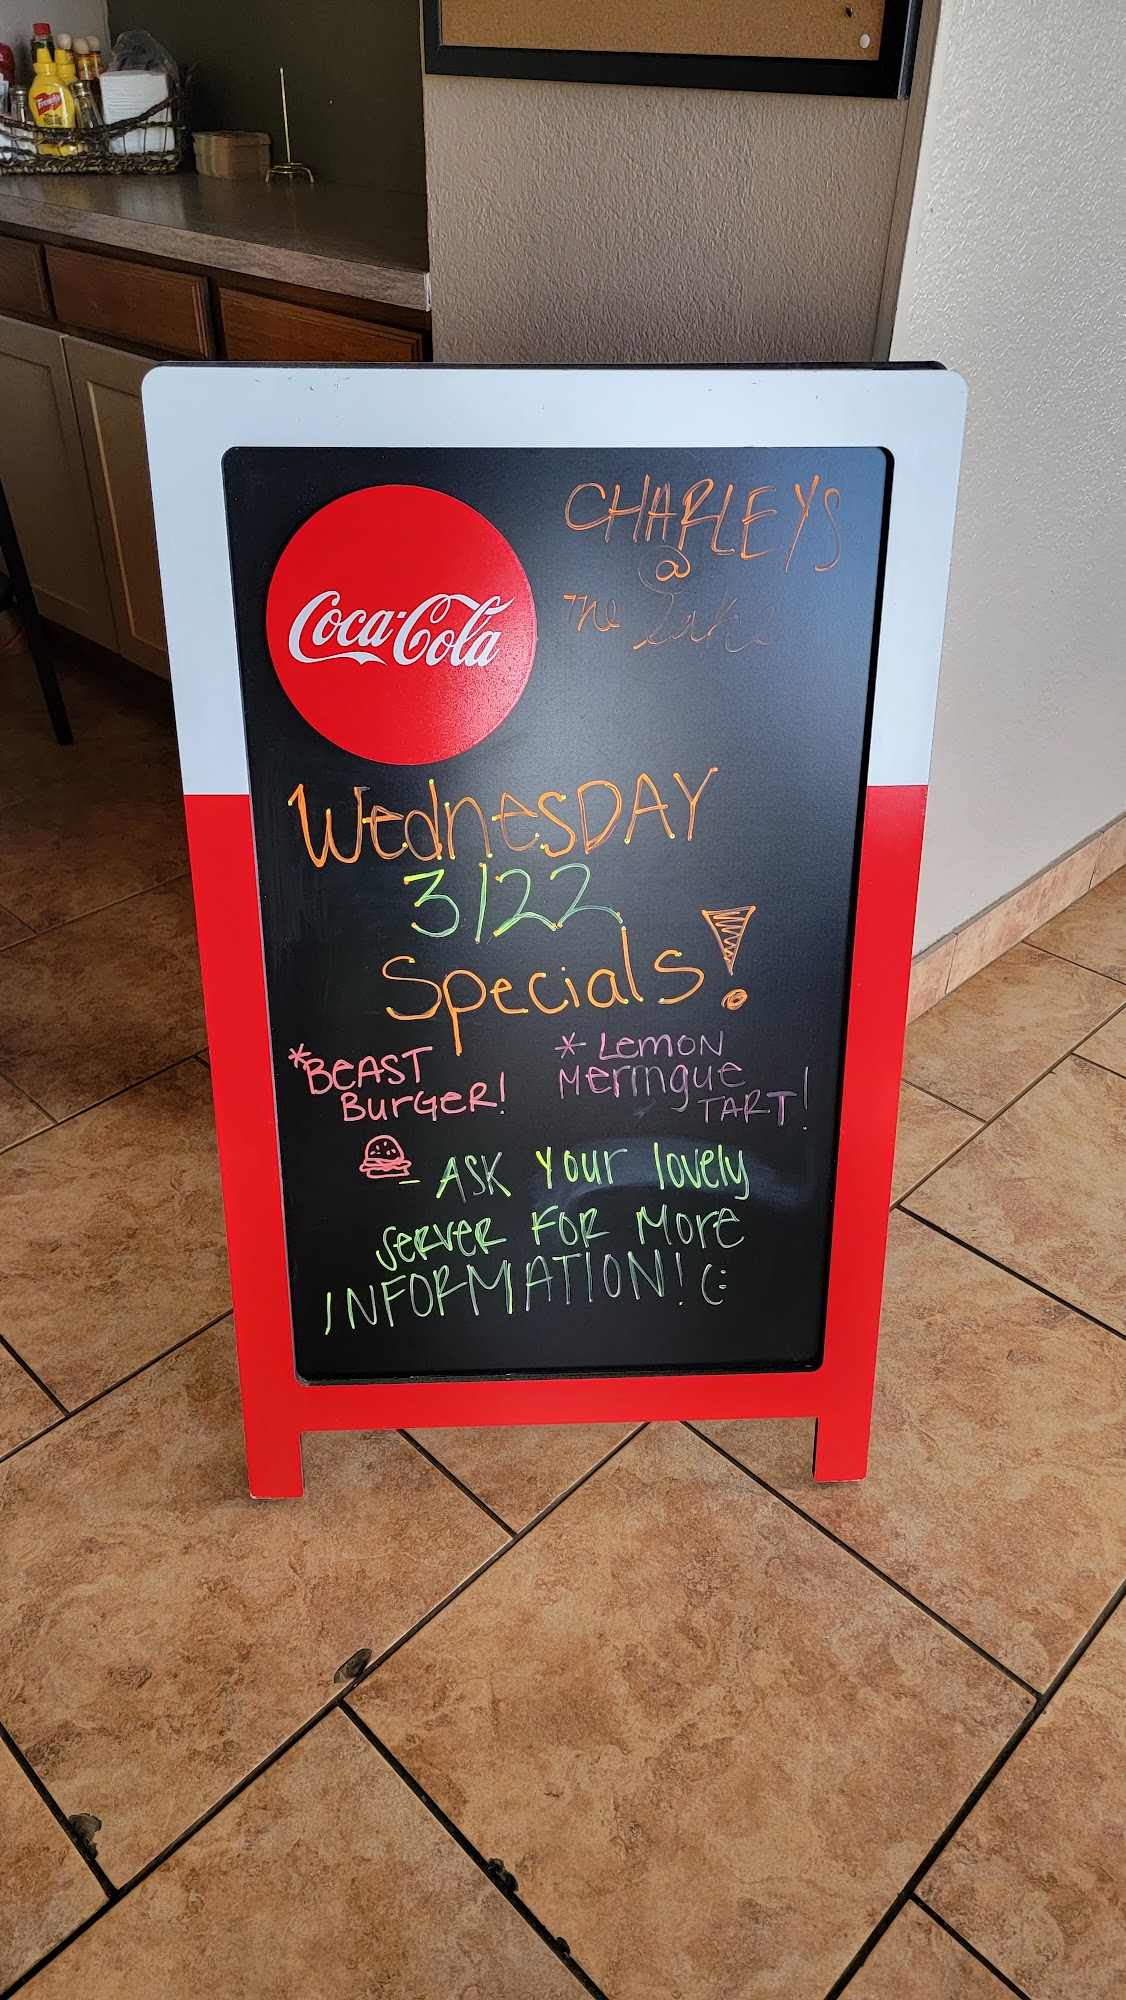 French's
CHARLEYS
@
The Lake
Coca-Cola
WednesDAY
3/22
Specials!
*BeAST
BURGER!
* Lemon
Meringue
TART!
- ASK Your lovely
server FOR More
INFORMATION! (: